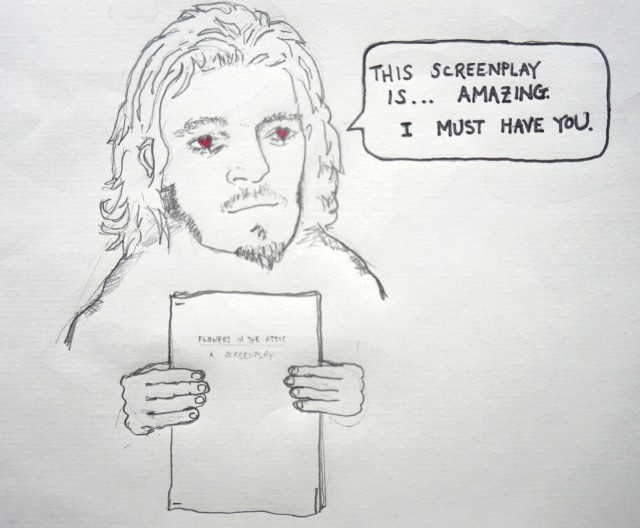 THIS SCREENPLAY
IS... AMAZING.
I MUST HAVE YOU.
FLOWERS IN THE ATTIC
A SCREENPLAY